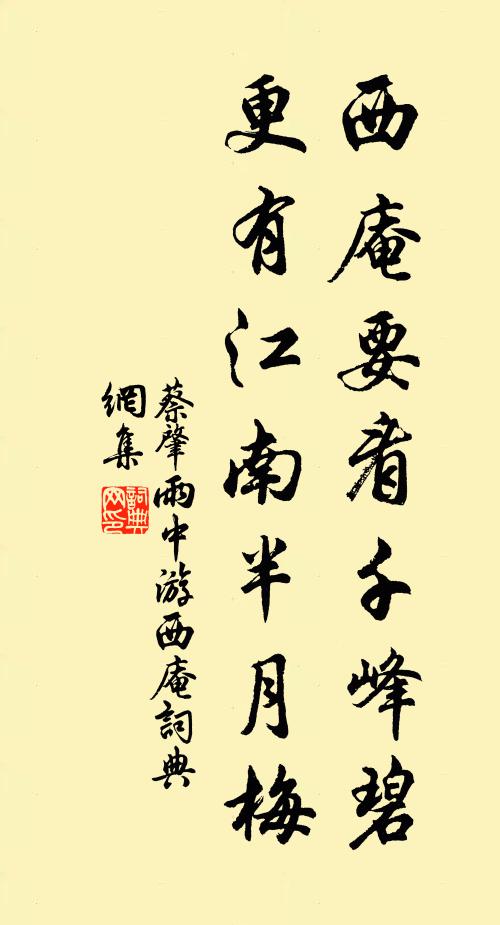 西庵要看千峰碧
更有江南半月梅
蔡肇雨中游西庵詞典
網集
詞典
网印